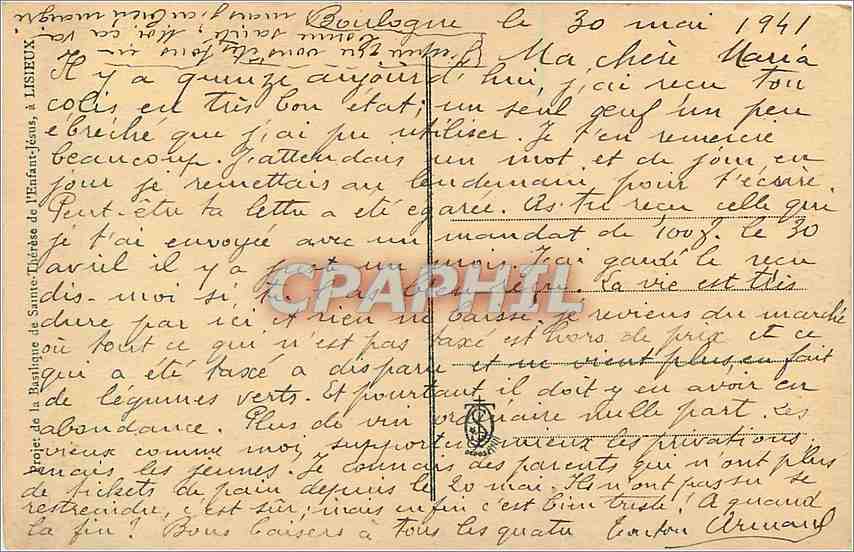 Boulogne le 30 mai 1941
Ma chère Maria
Il y a quinze aujourd'hui, j'ai reçu ton
colis en très bon état; un seul œuf un peu
ébréché que j'ai pu utiliser. Je t'en remercie
beaucoup. J'attendais un mot et de jour en
jour je remettais au lendemain pour t'écrire.
Peut-être ta lettre a été égarée. As-tu reçu celle que
je t'ai envoyée avec un mandat de 100f. le 30
avril il y a juste un mois. J'ai gardé le reçu
dis-moi si tu l'as bien reçu. La vie est très
dure par ici et rien ne baisse, je reviens du marché
où tout ce qui n'est pas taxé est hors de prix et ce
qui a été taxé a disparu et ne vient plus, en fait
de légumes verts. Et pourtant il doit y en avoir en
abondance. Plus de vin ordinaire nulle part. Les
vieux comme moi supportent mieux les privations
mais les jeunes. Je connais des parents qui n'ont plus
de tickets de pain depuis le 20 mai. Ils n'ont pas su se
restreindre, c'est sûr, mais enfin c'est bien triste! A quand
la fin? Bons baisers à tous les quatre Tonton Armand
J'espère que vous êtes tous en
bonne santé; Moi ça va
mais j'ai bien maigri
Projet de la Basilique de Sainte-Thérèse de l'Enfant-Jésus, à LISIEUX
CPARPHIL
DÉPOSÉ